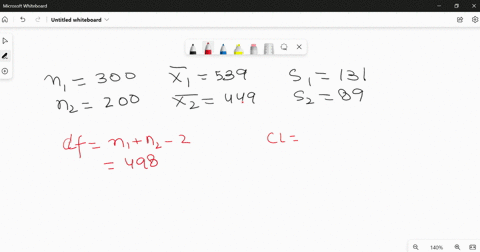 Microsoft Whiteboard
Untitled whiteboard
n₁ = 300 x̄₁ = 539 S₁ = 131
n₂ = 200 x̄₂ = 449 S₂ = 89
df = n₁ + n₂ - 2 CL =
= 498
140%